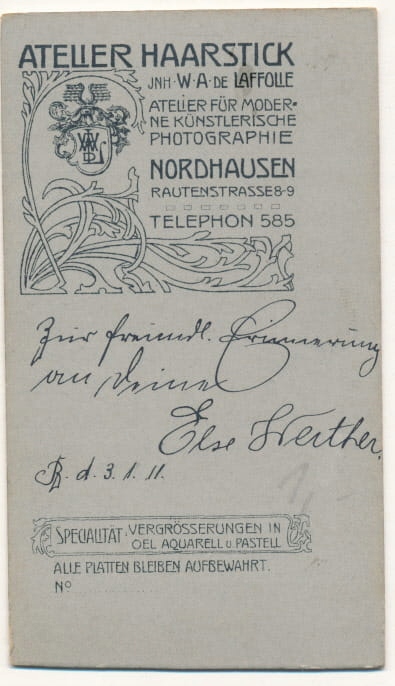 ATELIER HAARSTICK
JNH·W·A·DE LAFFOLLE
ATELIER FÜR MODER-
NE KÜNSTLERISCHE
PHOTOGRAPHIE
NORDHAUSEN
RAUTENSTRASSE 8-9
TELEPHON 585
Zur freundl. Erinnerung
an Deine
Else Werther.
d. 3. 1. 11.
SPECIALITÄT: VERGRÖSSERUNGEN IN
OEL AQUARELL U PASTELL
ALLE PLATTEN BLEIBEN AUFBEWAHRT.
No